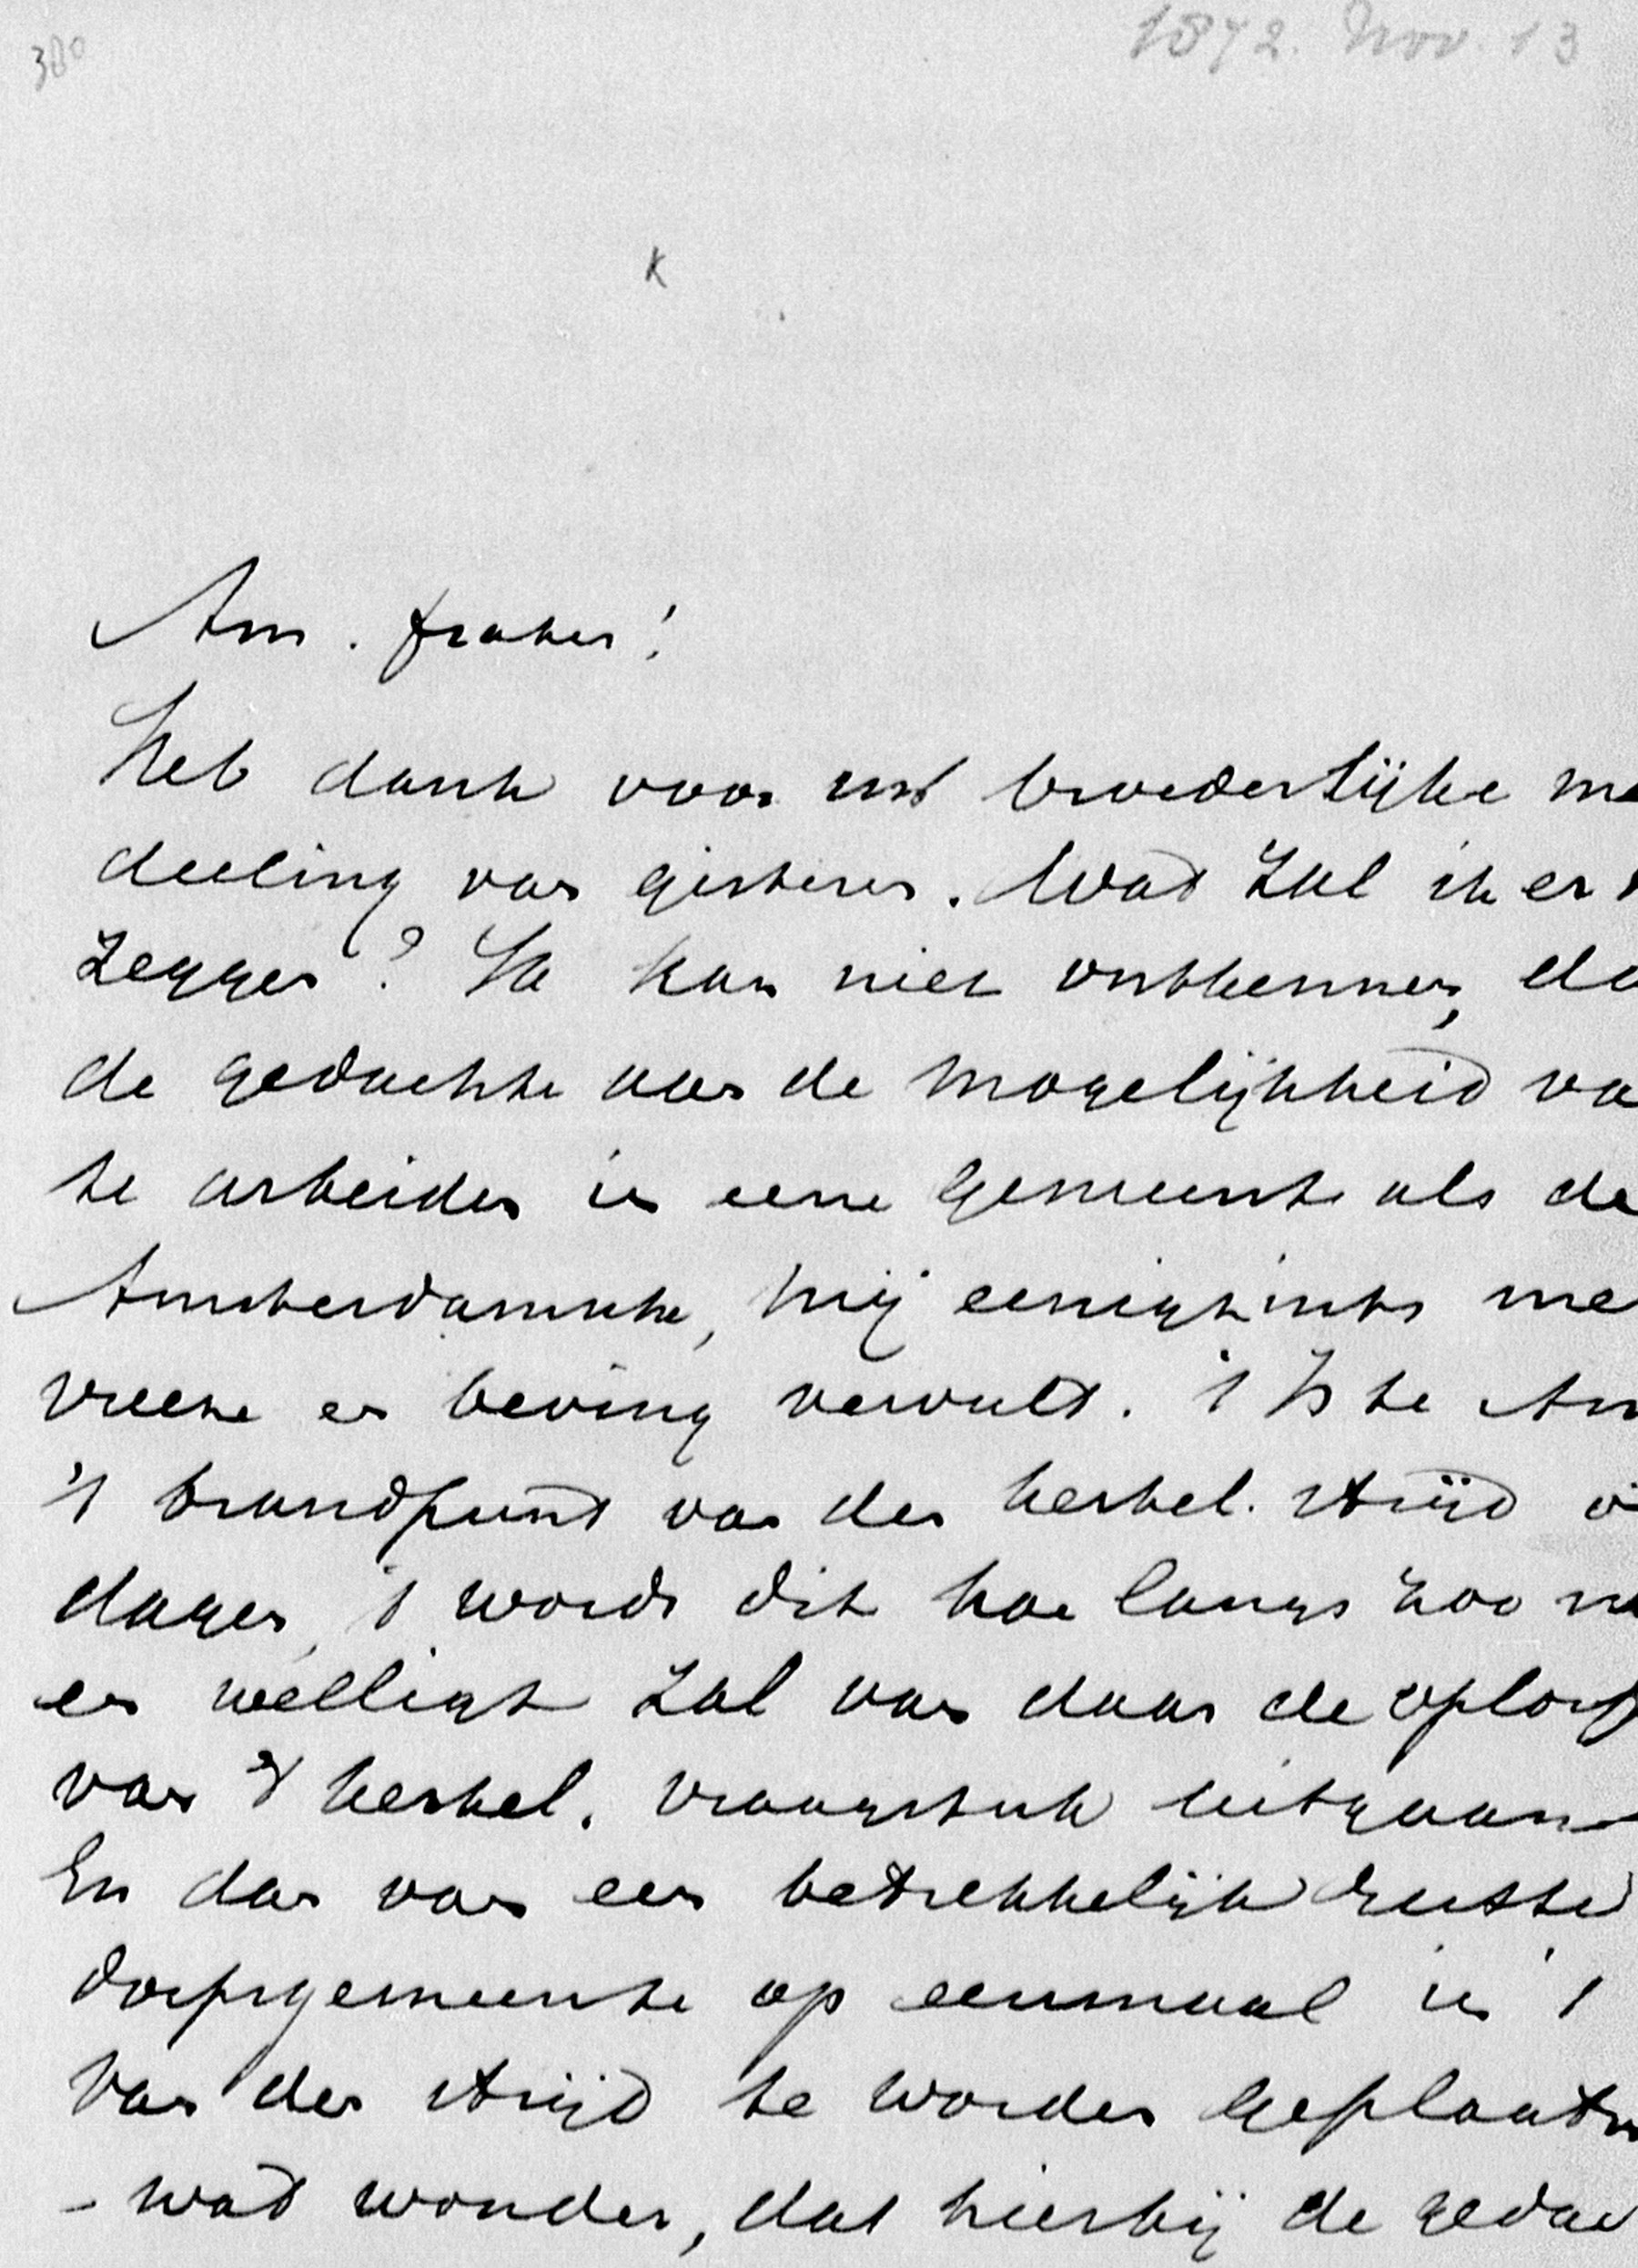 380
1872. Nov. 13
K
Am. frater!
Heb dank voor uw broederlijke me
deeling van gisteren. Wat zal ik er
zeggen? Ik kan niet ontkennen, da
de gedachte aan de mogelijkheid va
te arbeiden in eene gemeente als de
Amsterdamsche, mij eenigzints me
vreeze en beving vervult. 't Is te Am
't brandpunt van den kerkel. strijd
dagen, 't wordt dit hoe langs zoo m
en welligt zal van daar de oplos
van 't kerkel. vraagstuk uitgaan
En dan van een betrekkelijk rustte
dorpsgemeente op eenmaal in 't
van den strijd te worden geplaatst
- wat wonder, dat hierbij de gedac